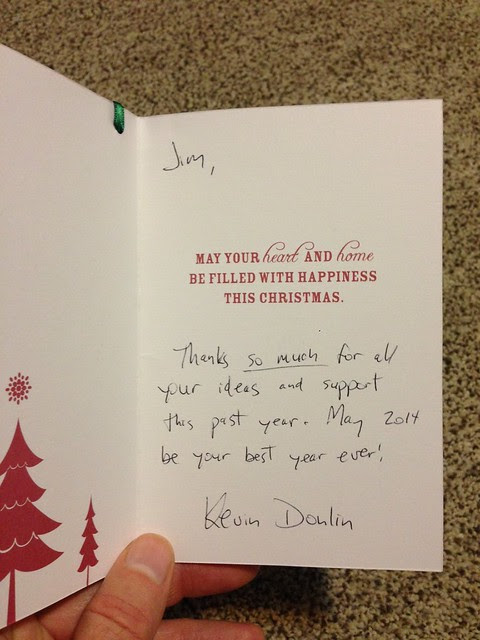 Jim,
MAY YOUR heart AND home
BE FILLED WITH HAPPINESS
THIS CHRISTMAS.
Thanks so much for all
your ideas and support
this past year. May 2014
be your best year ever!
Kevin Donlin